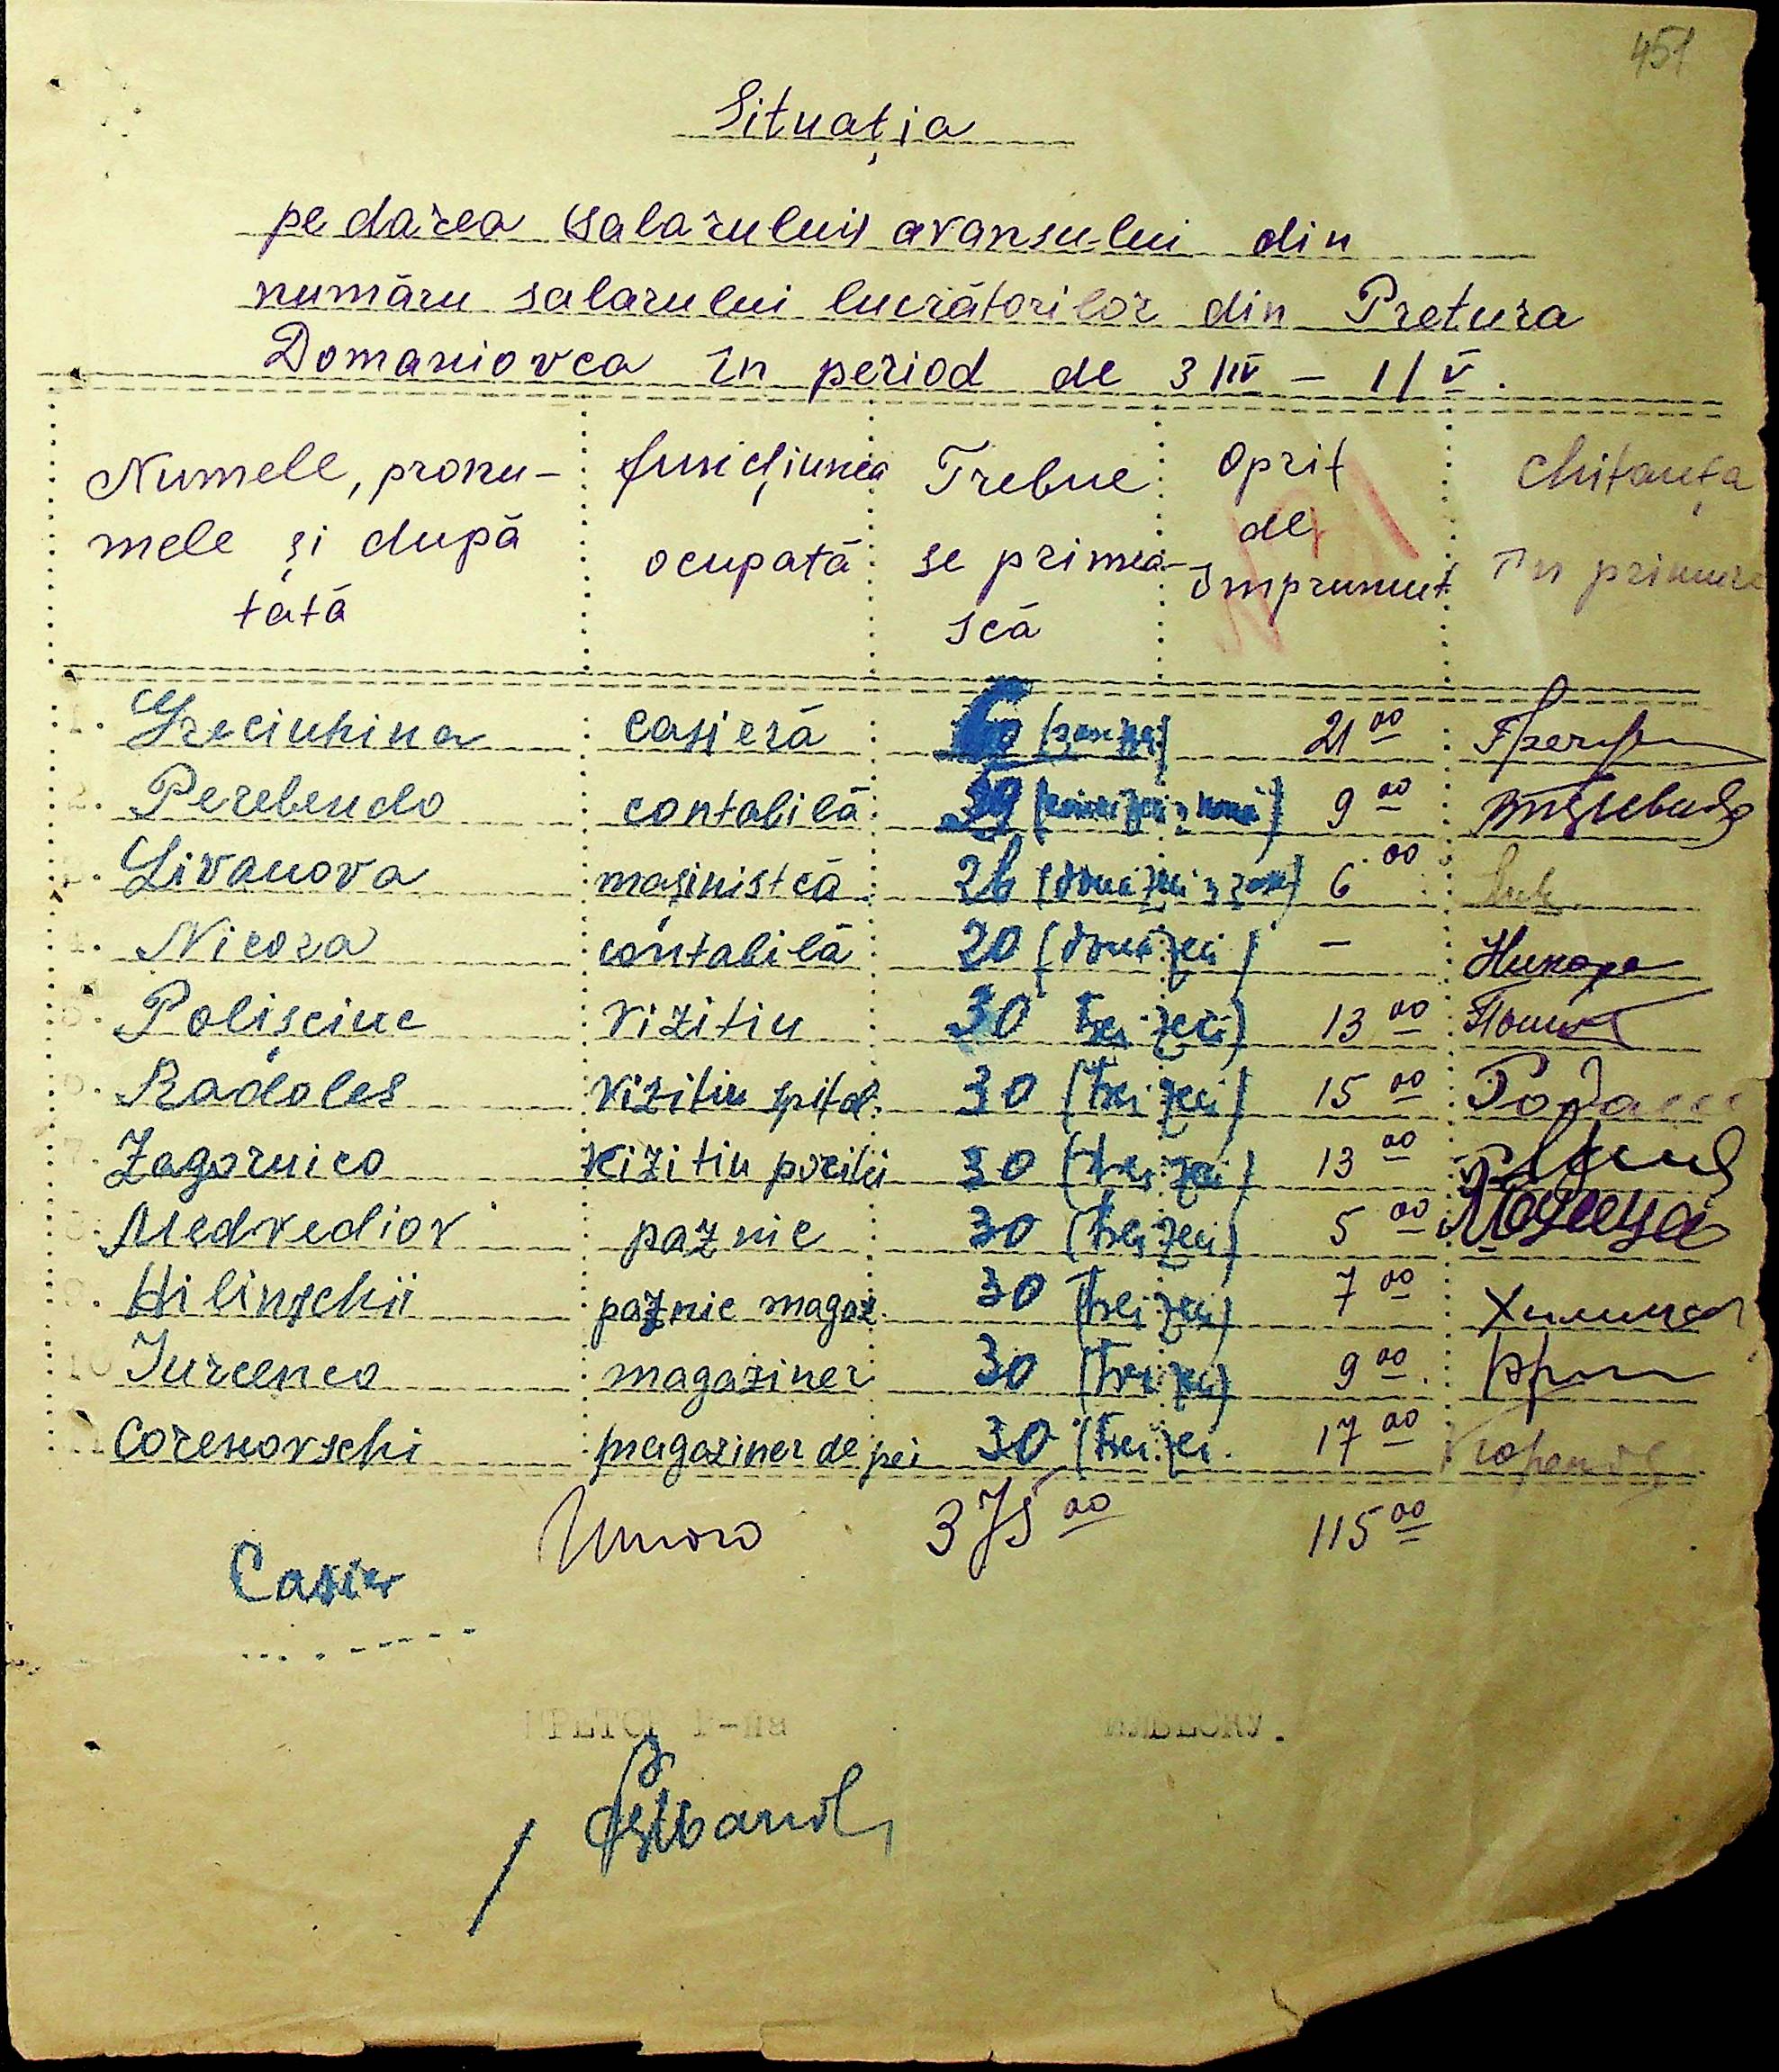 451
Situația
pe darea (salarului) avansu-lui din
număru salarului lucrătorilor din Pretura
Domaniovca în period de 3/IV – 1/V.
Numele, pronu-
mele și după
tată
funcțiunea
ocupată
Trebue
se primea-
scă
Oprit
de
împrumut
Chitanța
în primire
1. Greciuhina casieră 60 21 00
2. Perebendo contabilă 39 9 00
3. Livanova mașinistcă 26 6 00
4. Nicora contabilă 20 (două zeci) – Никора
5. Polișciuc vizitiu 30 trei zeci) 13 00
6. Radoles vizitiu spital. 30 (trei zeci) 15 00
7. Zagornico vizitiu 30 (trei zeci) 13 00
8. Medvediov paznic 30 (trei zeci) 5 00
9. Hilinschii paznic magaz. 30 (trei zeci) 7 00
10 Iurcenco magaziner 30 (trei zeci) 9 00.
11 Corenovschi magaziner de pei 30 (trei zeci. 17 00
375 00 115 00
Casier